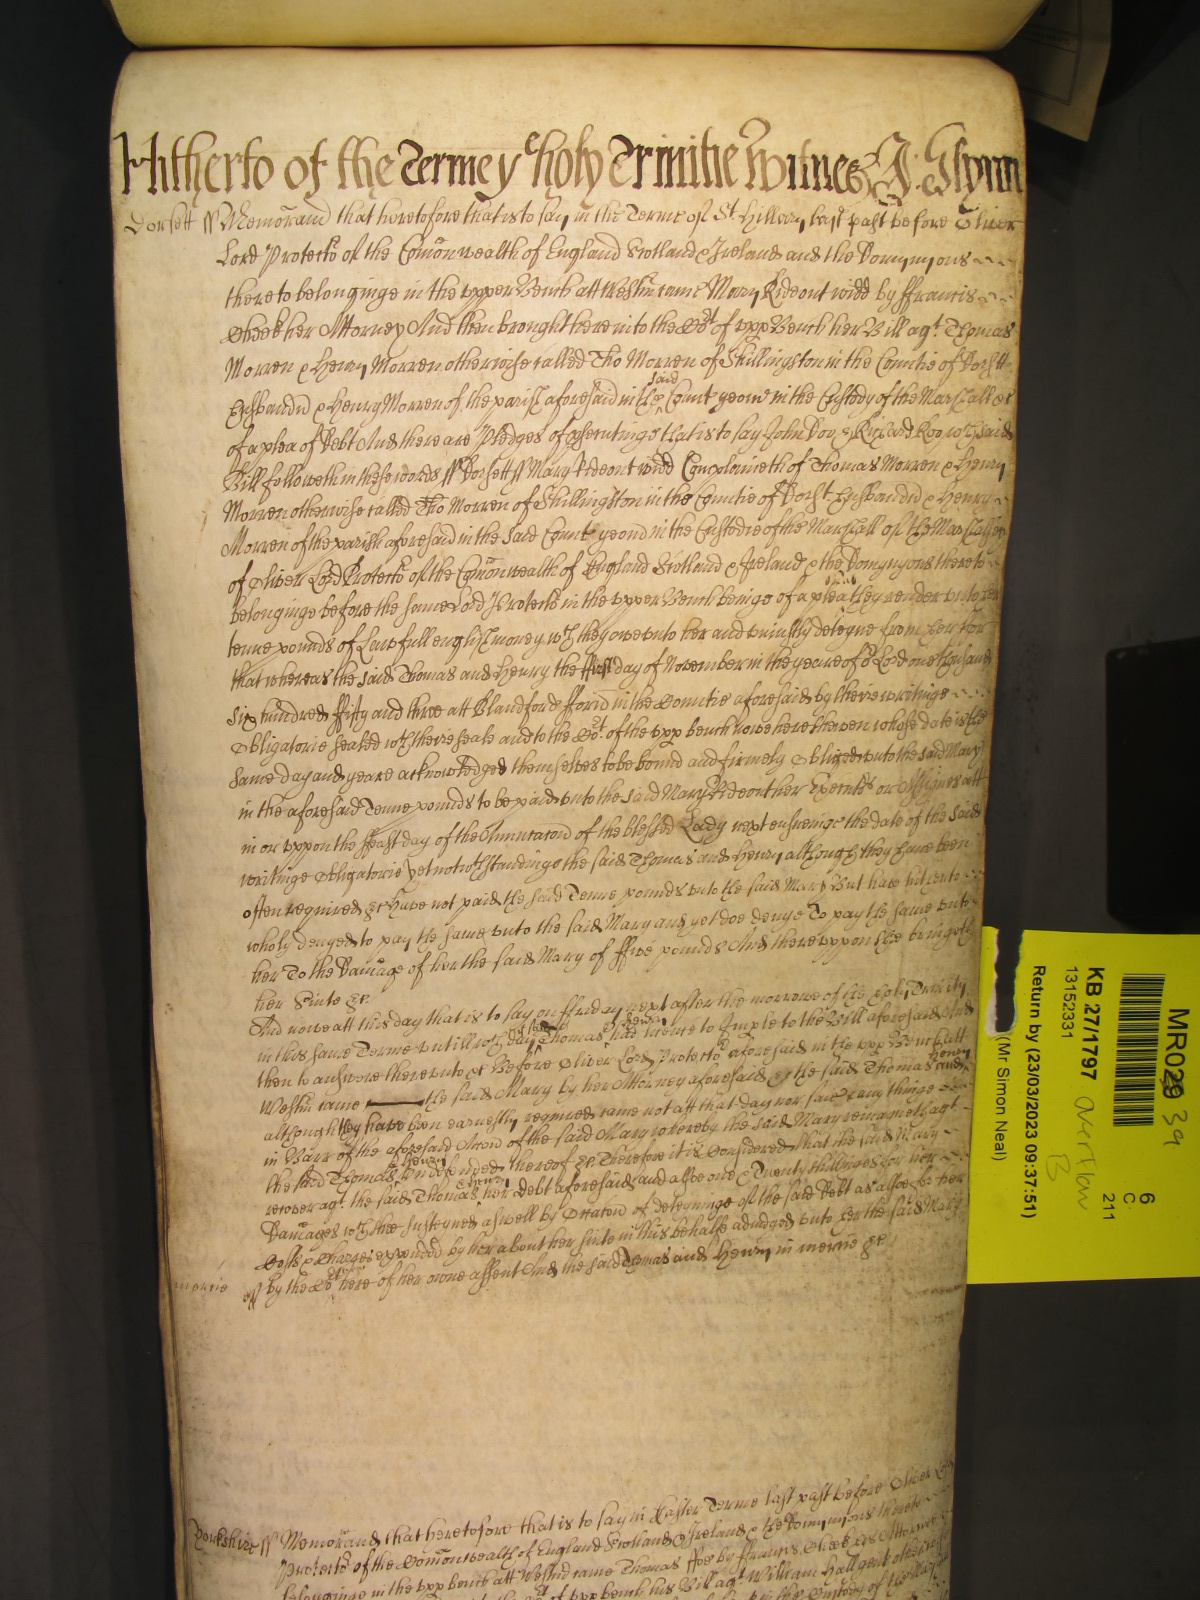 Hitherto of the Terme of holy Trinitie Witnes J. Glynn
Dorsett ss Memorand that heretofore that is to say in the Terme of St. Hillary last past before Oliver
Lord Protector of the Comonwealth of England Scotland & Ireland and the Dominyons
thereto belonginge in the upper Bench att Westm came Mary Rideout widd by ffrancis
her Attorney And then brought here into the Cot of upp Bench her Bill agt. Thomas
Morren & Henry Morren otherwise called Tho Morren of Shillingston in the Countie of Dorstt
husbandm & Henry Morren of the parish aforesaid in the said Count yeom in the Custody of the Marshall &c
of a plea of Debt And there are Pledges of prosecutinge that is to say John Doo & Richard Roo wch said
Bill followeth in these words ss Dorsett ss Mary Rideout widd Complaineth of Thomas Morren & Henry
Morren otherwise called Tho Morren of Shillingston in the Countie of Dorst husbandm & Henry
Morren of the parish aforesaid in the said Count yeom in the Custodie of the Marshall of the Marshalsea
of Oliver Lord Protector of the Comonwealth of England Scotland & Ireland & the Dominyons thereto
belonginge before the same Lord Protector in the upper Bench beinge of a plea that they render unto her
tenne pounds of Lawfull english money wch they owe unto her and uniustly deteyne from her For
that whereas the said Thomas and Henry the first day of November in the yeare of or Lord one thousand
six hundred ffifty and three att Blandford fforum in the Countie aforesaid by theire writinge
Obligatorie sealed wth theire seals and to the Cot. of the upp bench nowe here shewen whose date is the
same day and yeare acknowledged themselves to be bound and firmely obliged unto the said Mary
in the aforesaid Tenne pounds to be paid unto the said Mary Rideout her Executrs or Assignes att
in or uppon the ffeast day of the Annuntacon of the blessed Lady next ensueinge the date of the said
writinge Obligatorie yet notwthstandinge the said Thomas and Henry although they have been
often required &c Have not paid the said Tenne pounds unto the said Mary But have hitherto
wholy denyed to pay the same unto the said Mary and yet doe denye To pay the same unto
her To the Damage of her the said Mary of ffive pounds And thereuppon she bringeth
her Suite &c
And nowe att this day that is to say on ffriday next after the morrowe of the holy Trinity
in this same Terme untill wch day the said Thomas & Henry had licence to Imple to the Bill aforesaid And
then to answere thereunto &c Before Oliver Lord Protector aforesaid in the upp Bench att
Westm came the said Mary by her Attorney aforesaid & the said Thomas and Henry
although they have been earnestly required came not att that day nor saie any thinge
in Barr of the aforesaid Accon of the said Mary whereby the said Mary remaineth agt
the said Thomas & Henry undefended thereof &c Therefore it is Considered that the said Mary
recover agt. the said Thomas & Henry her Debt aforesaid and alsoe one & Twenty shillinges for her
Damages wch shee susteyned aswell by Occacon of deteyninge of the said Debt as alsoe for her
Costs & Charges expended by her about her suite in this behalfe adiudged unto her the said Mary
mercie ss by the Cot here of her owne assent And the said Thomas and Henry in mercie &c
Yorkshire ss Memorand that heretofore that is to say in Easter Terme last past before Oliver Lord
Protector of the Comonwealth of England Scotland & Ireland & the Dominions thereto
belonginge in the upp bench att Westm came Thomas ffoe by ffrancis his Attorney
of upp bench his Bill agt William Hall gent otherwise
in the Custody of the Mar
MR029 39
6
C
211
KB 27/1797 overflow
B
13152331
Return by (23/03/2023 09:37:51)
(Mr Simon Neal)